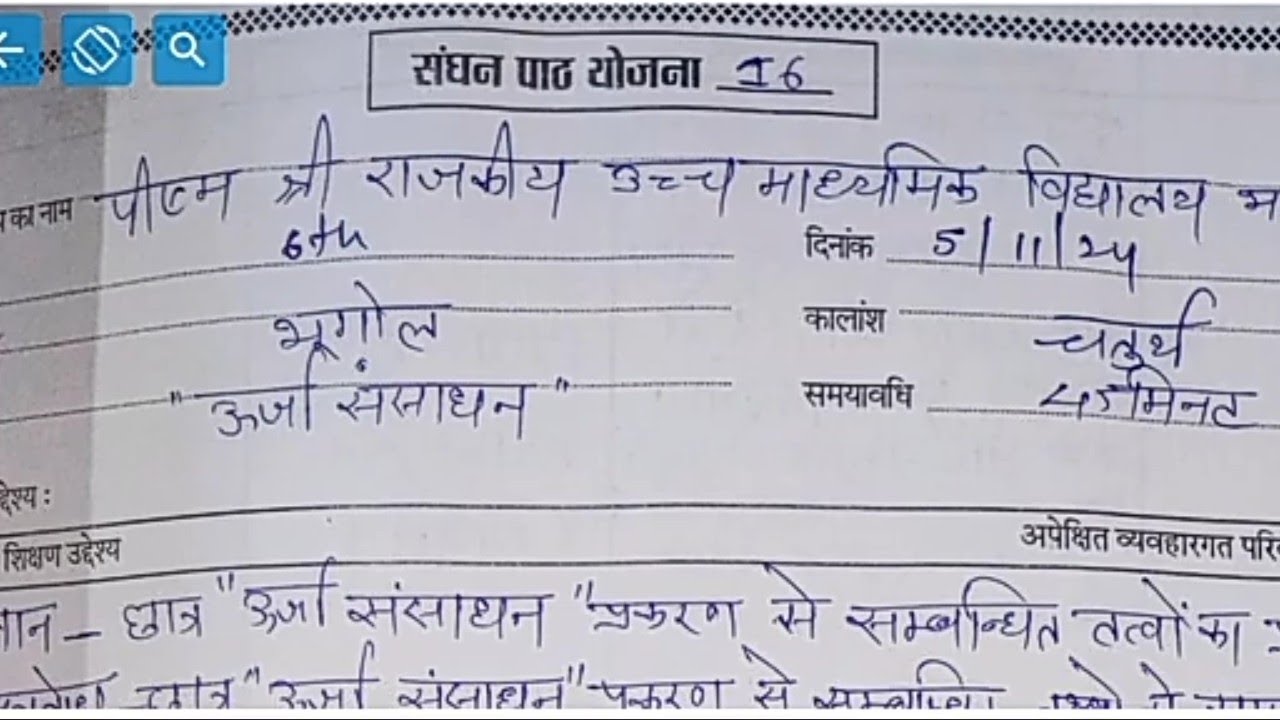 संघन पाठ योजना 16
का नाम पीएम श्री राजकीय उच्च माध्यमिक विद्यालय
6th दिनांक 5/11/24
भूगोल कालांश चतुर्थ
"ऊर्जा संसाधन" समयावधि 45 मिनट
द्देश्य :
शिक्षण उद्देश्य अपेक्षित व्यवहारगत
छात्र "ऊर्जा संसाधन" प्रकरण से सम्बन्धित तत्वों का
छात्र "ऊर्जा संसाधन" प्रकरण से